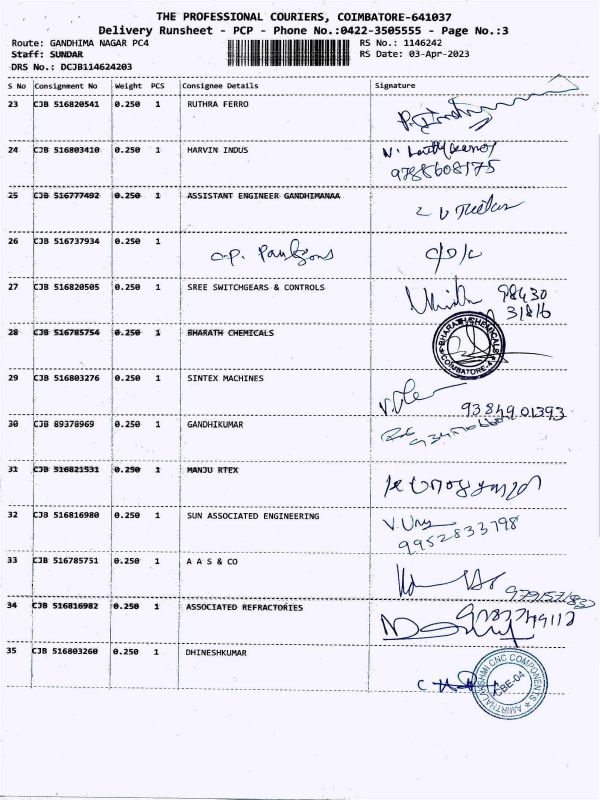 THE PROFESSIONAL COURIERS, COIMBATORE-641037
Delivery Runsheet - PCP - Phone No.:0422-3505555 - Page No.:3
Route: GANDHIMA NAGAR PC4 RS No.: 1146242
Staff: SUNDAR RS Date: 03-Apr-2023
DRS No.: DCJB114624203
S No Consignment No Weight PCS Consignee Details Signature
23 CJB 516820541 0.250 1 RUTHRA FERRO
24 CJB 516803410 0.250 1 HARVIN INDUS
9788608175
25 CJB 516777492 0.250 1 ASSISTANT ENGINEER GANDHIMANAA
26 CJB 516737934 0.250 1
27 CJB 516820505 0.250 1 SREE SWITCHGEARS & CONTROLS
98430
31816
28 CJB 516785754 0.250 1 BHARATH CHEMICALS BHARATH CHEMICALS COIMBATORE-4
29 CJB 516803276 0.250 1 SINTEX MACHINES
9384901393
30 CJB 89378969 0.250 1 GANDHIKUMAR
31 CJB 516821531 0.250 1 MANJU RTEX
32 CJB 516816980 0.250 1 SUN ASSOCIATED ENGINEERING
9952833798
33 CJB 516785751 0.250 1 A A S & CO
34 CJB 516816982 0.250 1 ASSOCIATED REFRACTORIES
35 CJB 516803260 0.250 1 DHINESHKUMAR
AMIRTHALAKSHMI CNC COMPONENTS CBE-04